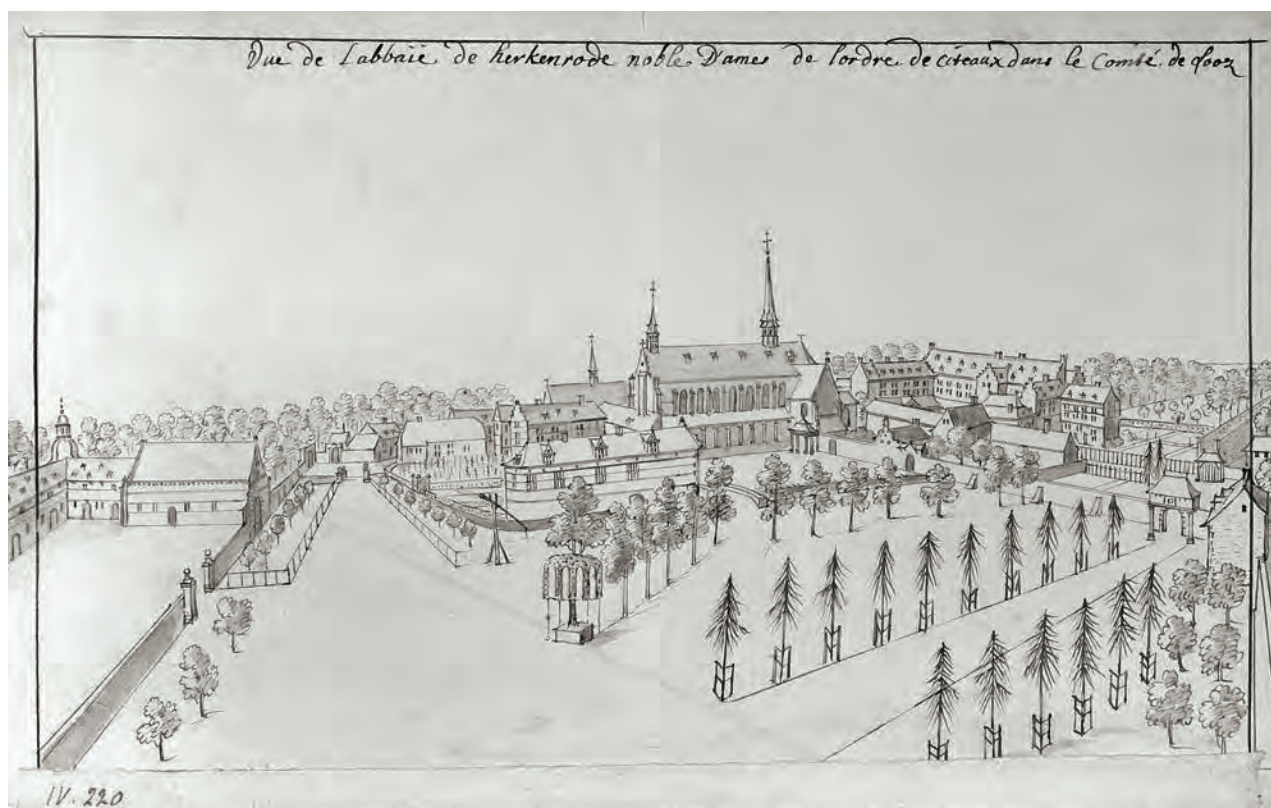 Vue de Labbaïe de herkenrode noble Dames de lordre de citeaux dans le Comté de looz
IV. 220